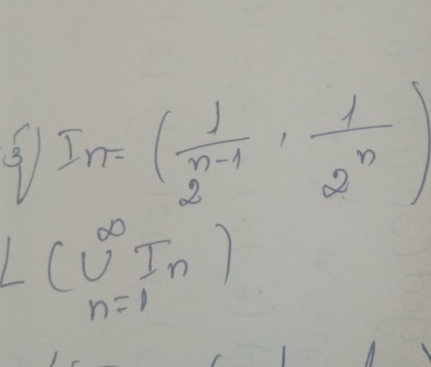 3) In = (1/2^(n-1), 1/2^n)
L (∪_{n=1}^∞ In)